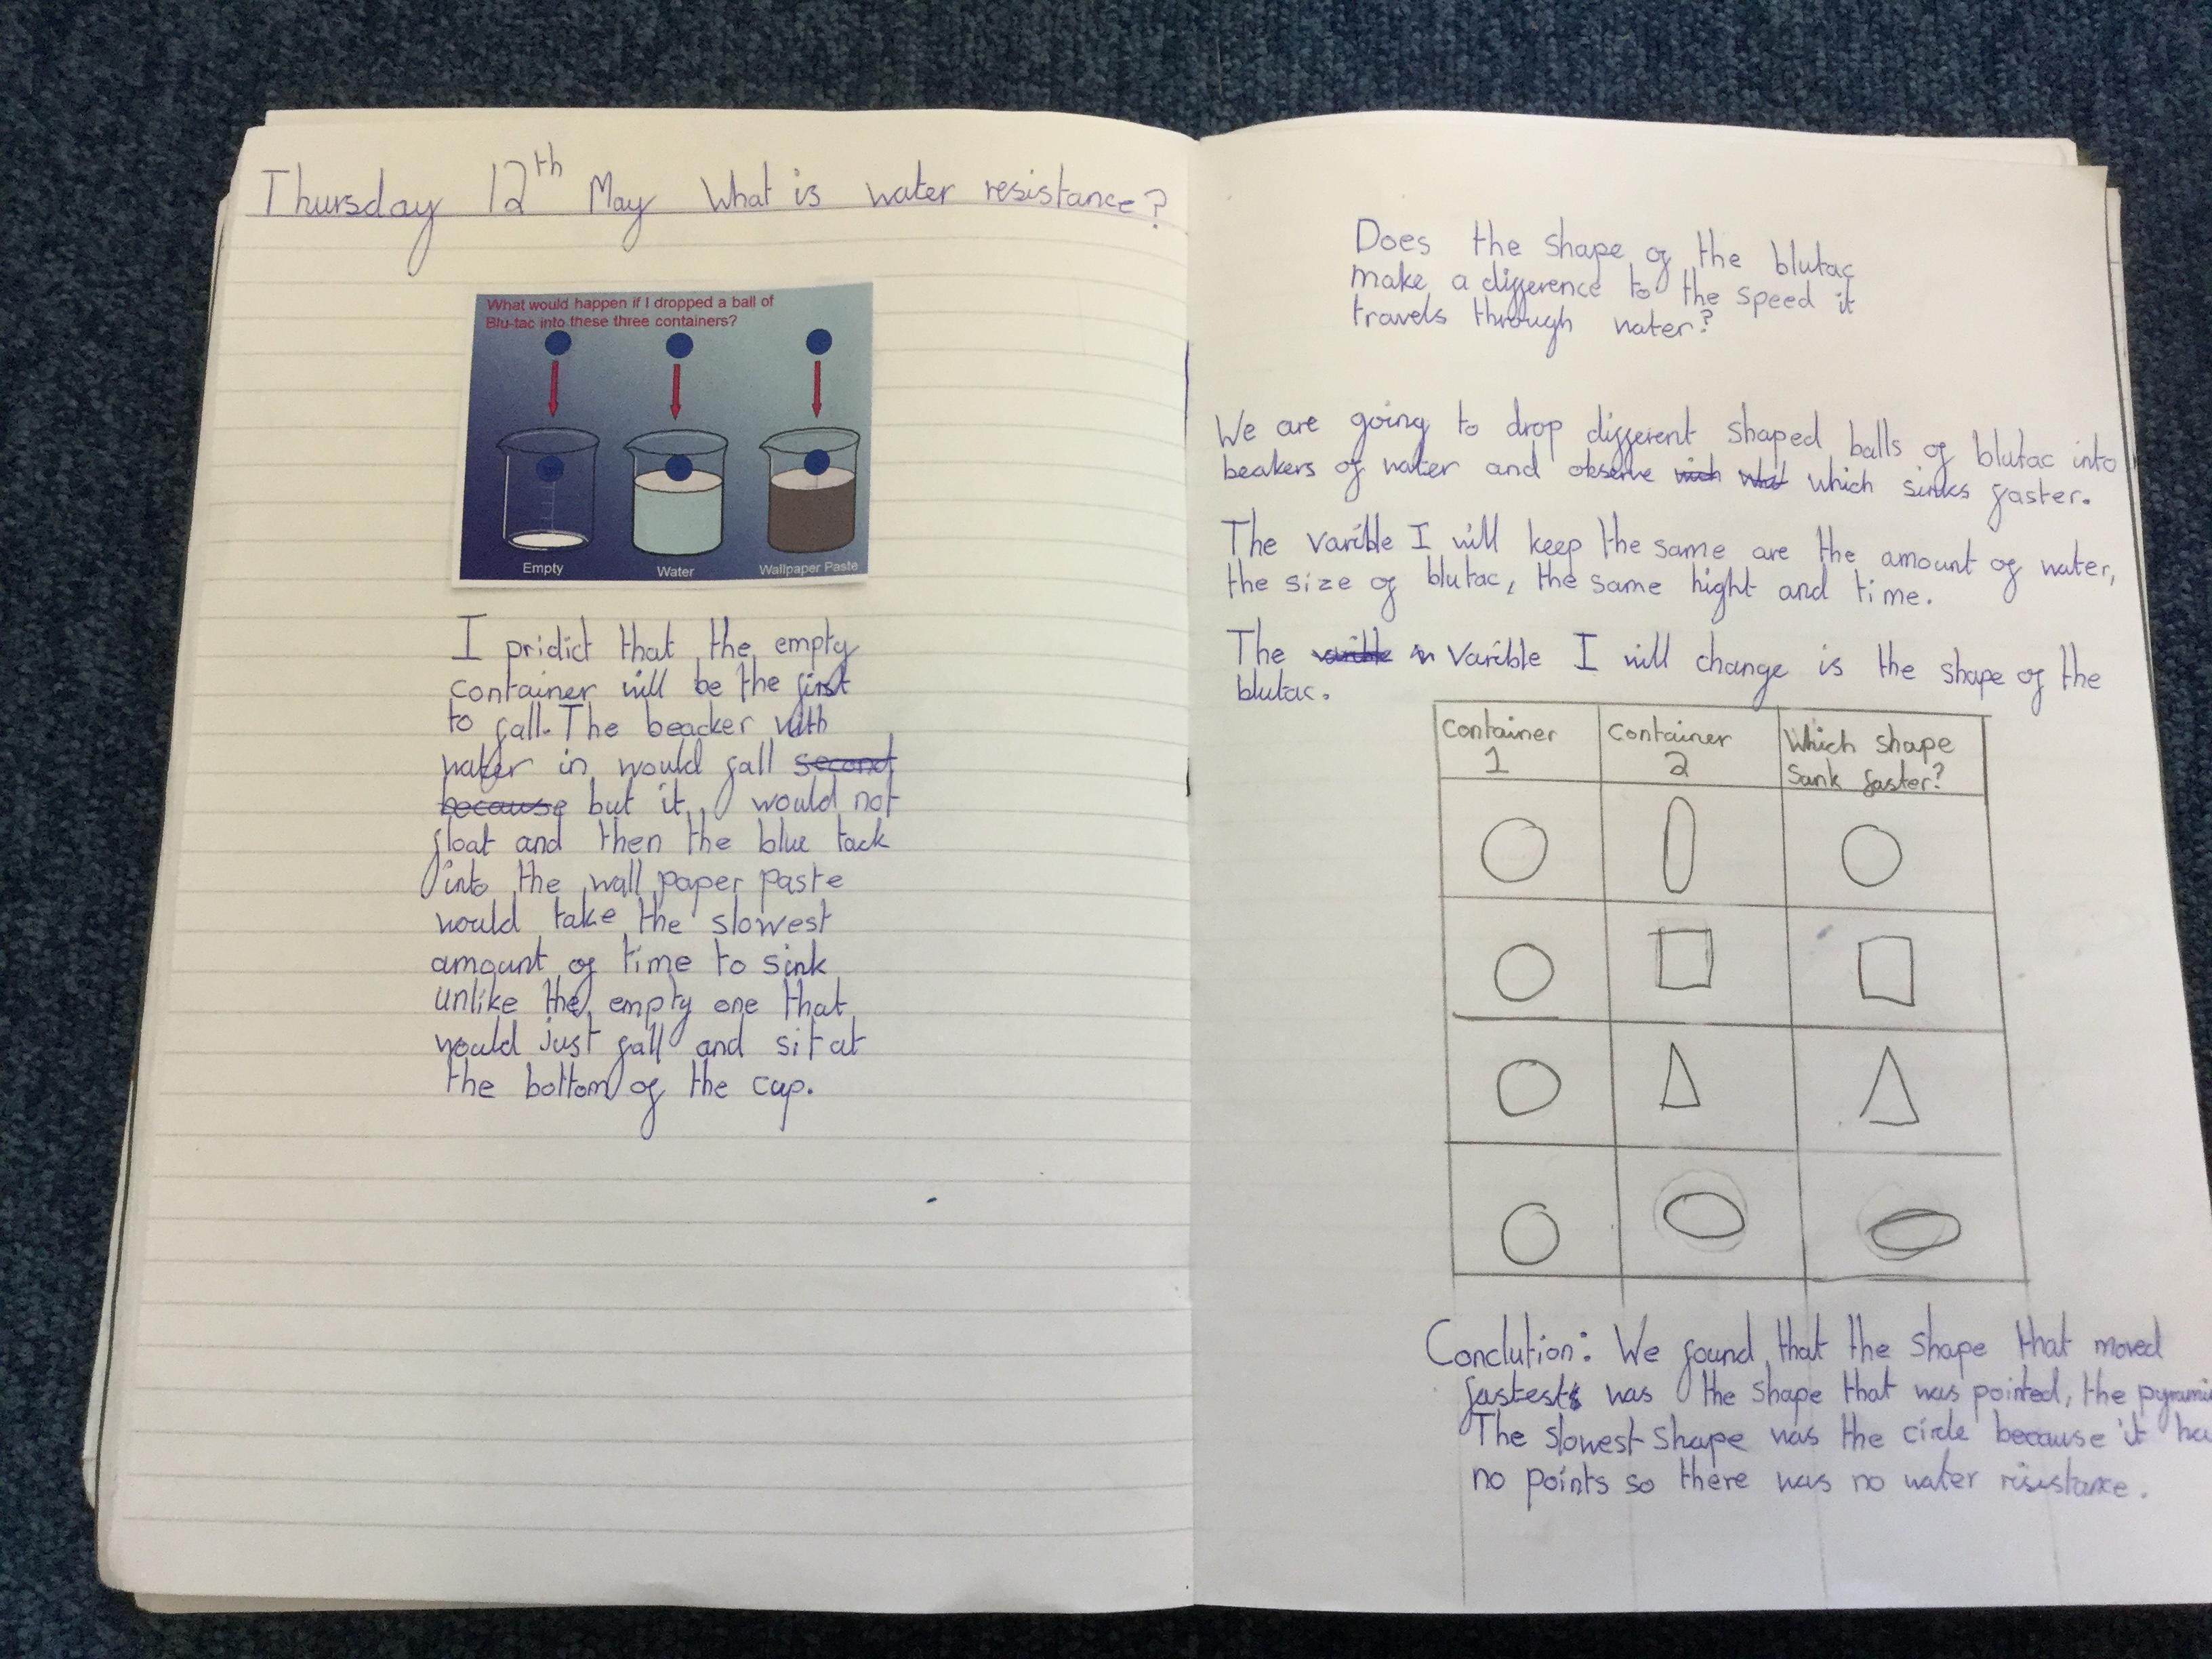 Thursday 12th May What is water resistance?
What would happen if I dropped a ball of
Blu-tac into these three containers?
Empty
Water
Wallpaper Paste
I pridict that the empty
container will be the first
to fall. The beacker with
water in would fall second
because but it would not
float and then the blue tack
into the wall paper paste
would take the slowest
amount of time to sink
unlike the empty one that
would just fall and sit at
the bottom of the cup.
Does the shape of the blutac
make a difference to the speed it
travels through water?
We are going to drop different shaped balls of blutac into
beakers of water and observe wich what which sinks faster.
The varible I will keep the same are the amount of water,
the size of blutac, the same hight and time.
The varible Varible I will change is the shape of the
blutac.
Container
1
Container
2
Which shape
Sank faster?
Conclution: We found that the shape that moved
fastest was the shape that was pointed, the pyrami
The slowest shape was the circle because it ha
no points so there was no water risistance.